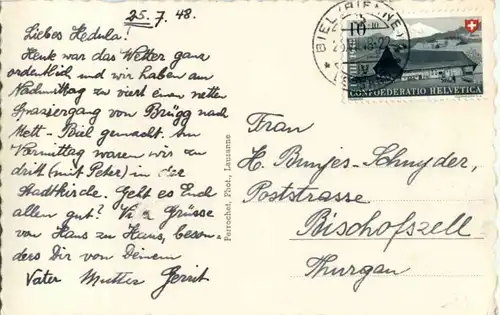 25.7.48.
Liebes Hedula!
Heute war das Wetter ganz
ordentlich und wir haben am
Nachmittag zu viert einen netten
Spaziergang von Brügg nach
Mett-Biel gemacht. Am
Vormittag waren wir zu
dritt (mit Peter) in der
Stadtkirche. Geht es Euch
allen gut? Viele Grüsse
von Haus zu Haus, beson-
ders Dir von Deinem
Vater Mutter Gerrit
Perrochet, Phot., Lausanne
BIEL (BIENNE)
10
CONFOEDERATIO HELVETICA
Frau
H. Bunjes-Schnyder,
Poststrasse
Bischofszell
Thurgau